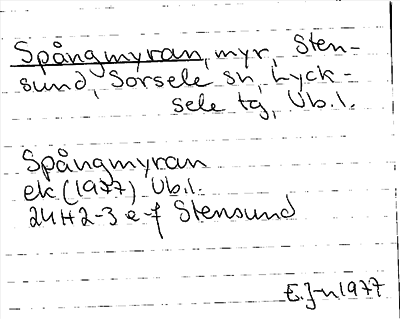 Spångmyran, myr, Sten-
sund, Sorsele sn, Lyck-
sele tg, Vb.l.
Spångmyran
ek (1977) Vb.l.
24H2-3 e-f Stensund
E.J-n 1977